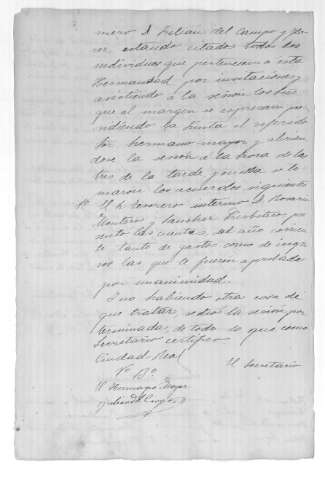 mero D. Julian del Campo y 
estando citados todos los
individuos que pertenecen a esta
Hermandad por invitaciones y
asistiendo a la sesion los Sres
que al margen se expresan pre
sidiendo la Junta el referido
Sr. hermano mayor y abrien
dose la sesion a la hora de las
tres de la tarde y en ella se to
maron los acuerdos siguientes
El Sr. tesorero interino D.
Monteros y Sanchez pre
sento las cuentas, del año
te tanto de gastos como de ingre
sos las que le fueron aprobadas
por unanimidad.
Y no habiendo otra cosa de
que tratar, se dio la sesion por
terminada, de todo lo que como
Secretario certifico
Ciudad Real
El Secretario
Vº Bº
El Hermano Mayor
Julian del Campo